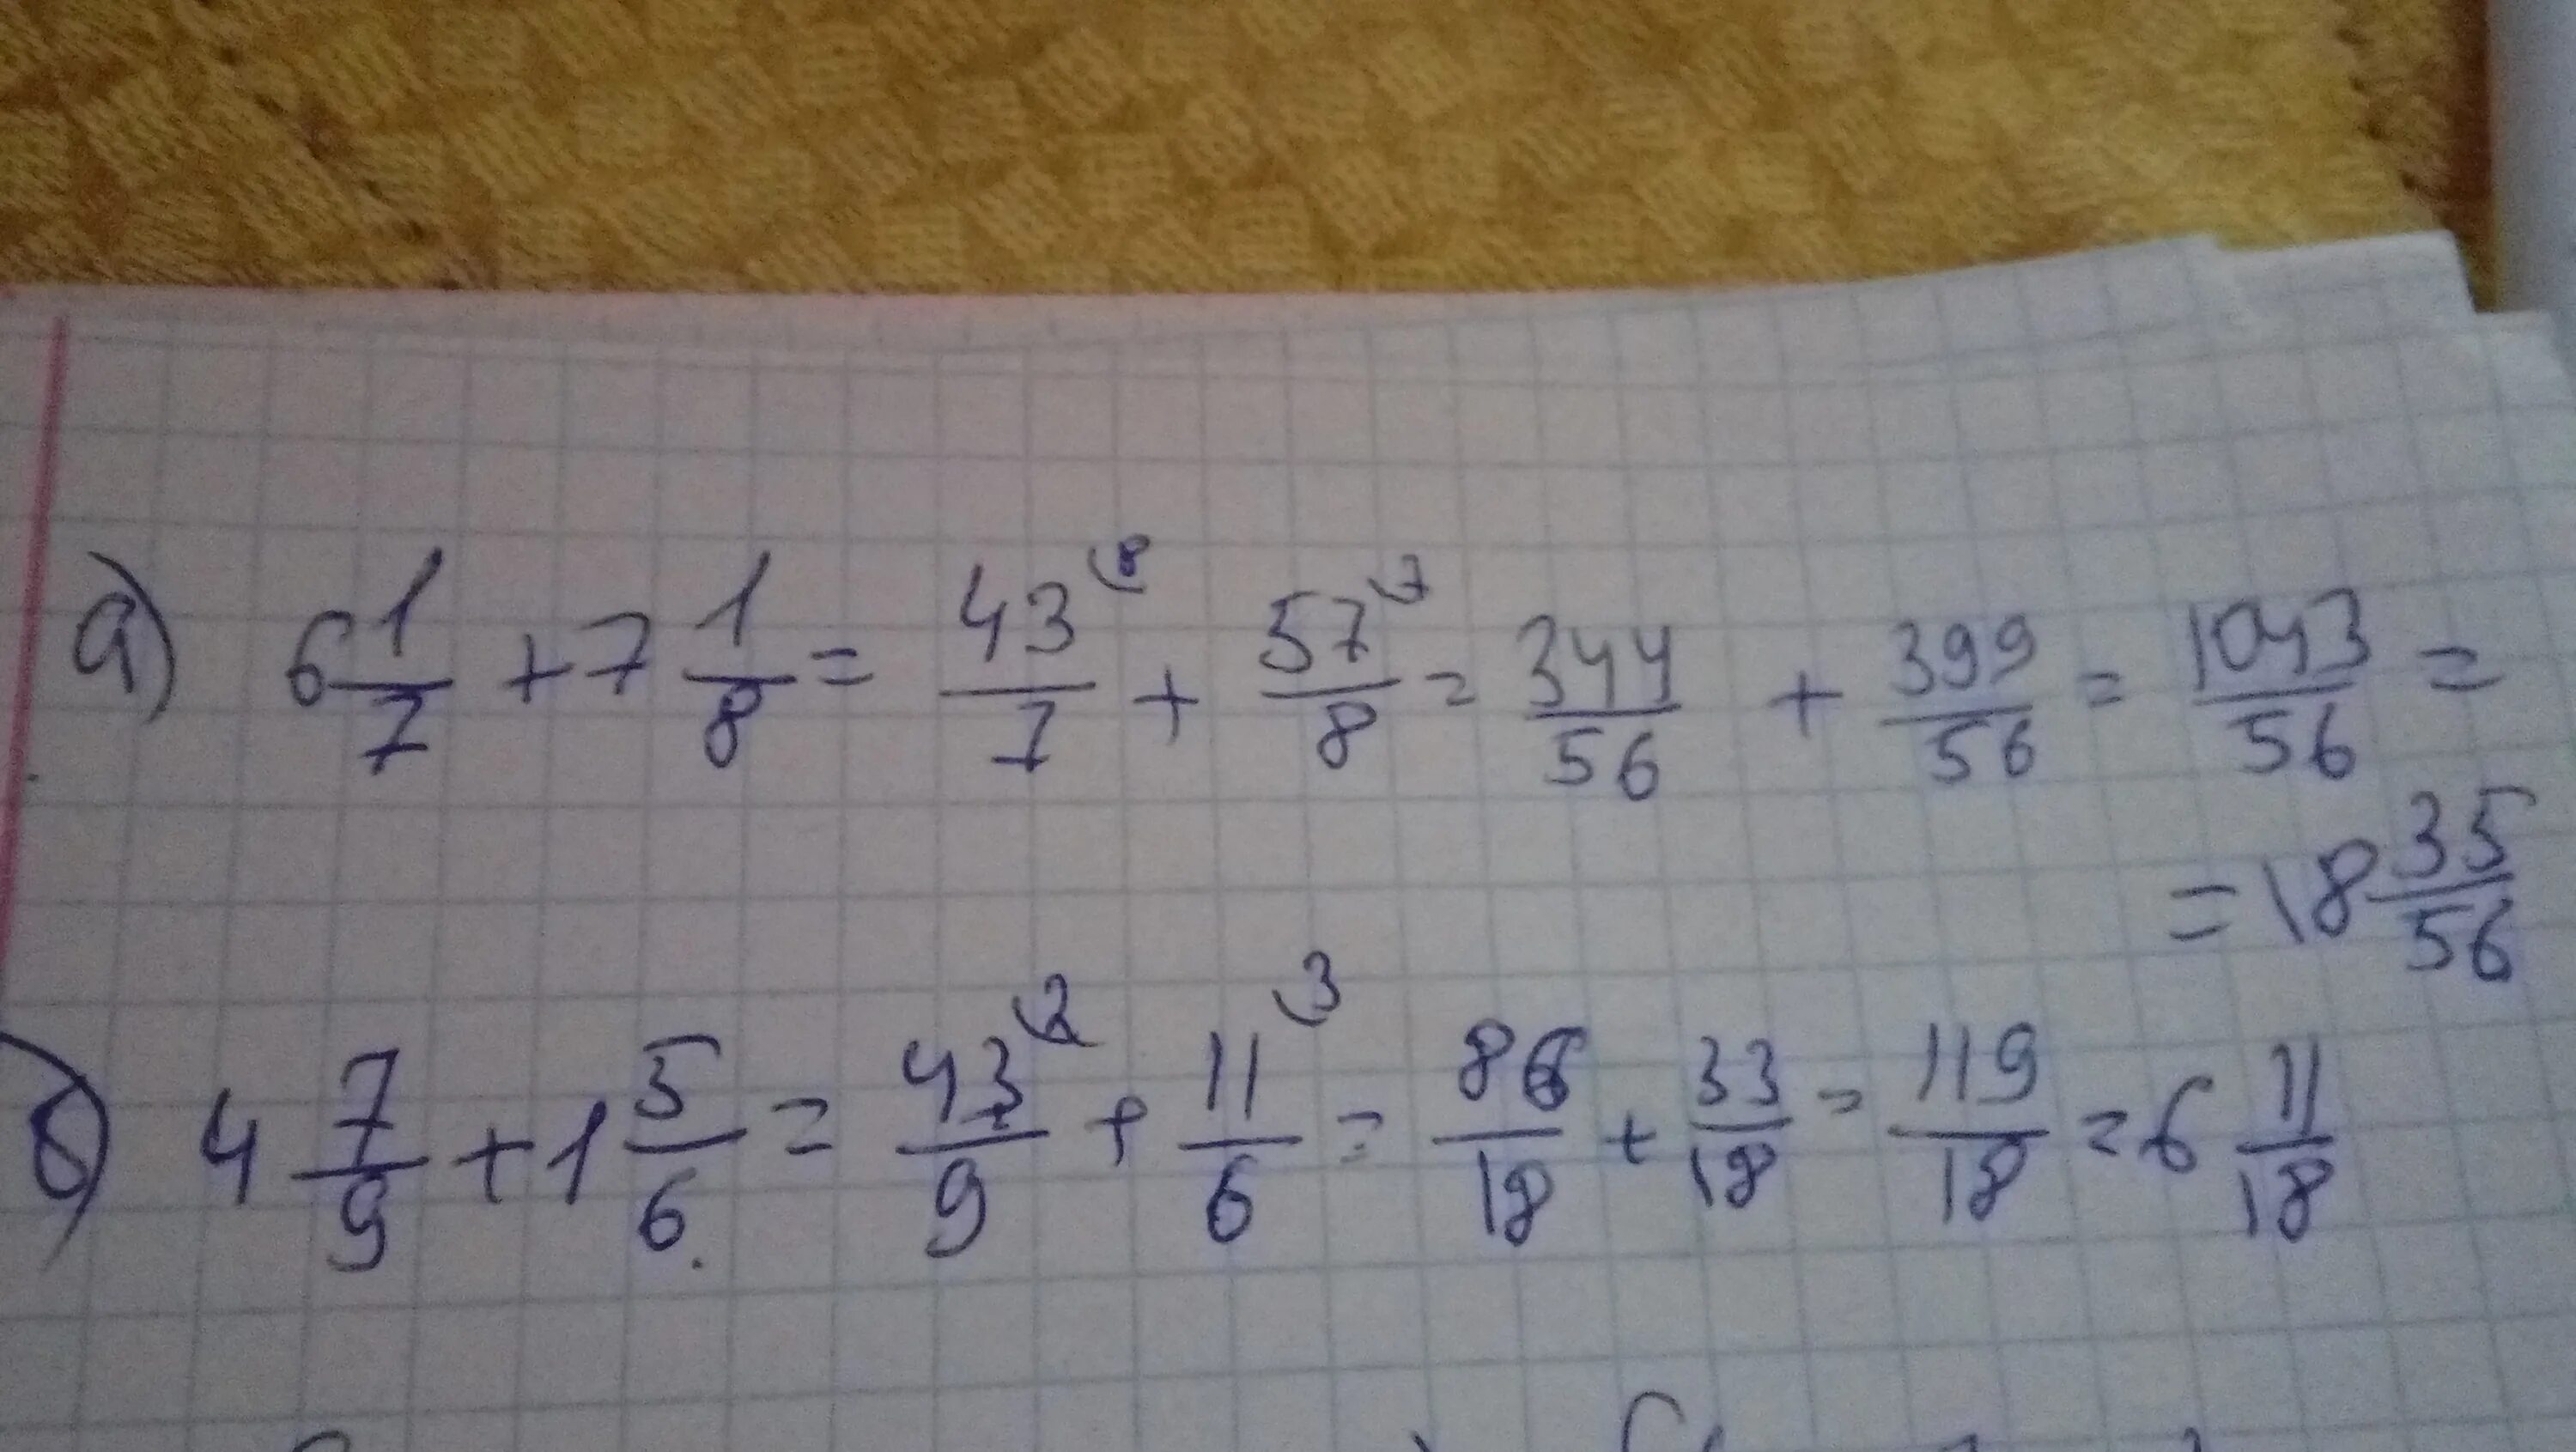 а) 6 1/7 + 7 1/8 = 43/7 (8 + 57/8 (7 = 344/56 + 399/56 = 1043/56 =
= 18 35/56
б) 4 7/9 + 1 5/6 = 43/9 (2 + 11/6 (3 = 86/18 + 33/18 = 119/18 = 6 11/18